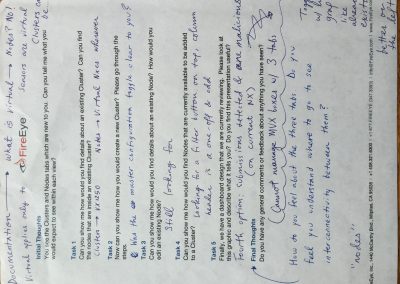 Documentation → What is Virtual → Nodes? No!
Virtual applies only to Sensors are virtual
Clusters can be.
FireEye
Initial Thoughts
You see the Clusters and Nodes tabs which are new to you. Can you tell me what you
would expect to see within each view?
Task 1
Can you show me how would you find details about an existing Cluster? Can you find
the nodes that are inside an existing Cluster?
Cluster → Nodes → Virtual Nxes wherever
Task 2
Now can you show me how you would create a new Cluster? Please go through the
steps.
Was the master configuration toggle clear to you?
Task 3
Can you show me how would you find details about an existing Node? How would you
edit an existing Node?
Still looking for
Task 4
Can you show me how would you find Nodes that are currently available to be added
to a Cluster?
Looking for a filter button on top, column
header is one off & odd
Task 5
Finally, we have a dashboard design that we are currently reviewing. Please look at
this graphic and describe what it tells you? Do you find this presentation useful?
fourth option: Submissions detected & are malicious
on current NX)
Final Thoughts
Do you have any general comments or feedback about anything you have seen?
Cannot manage MVX boxes w/ 3 tabs
How do you feel about the three tabs. Do you
feel you understand where to go to see
interconnectivity between them?
"nodes"
Toggle
w/
graph
like
already
exists
better on
the left